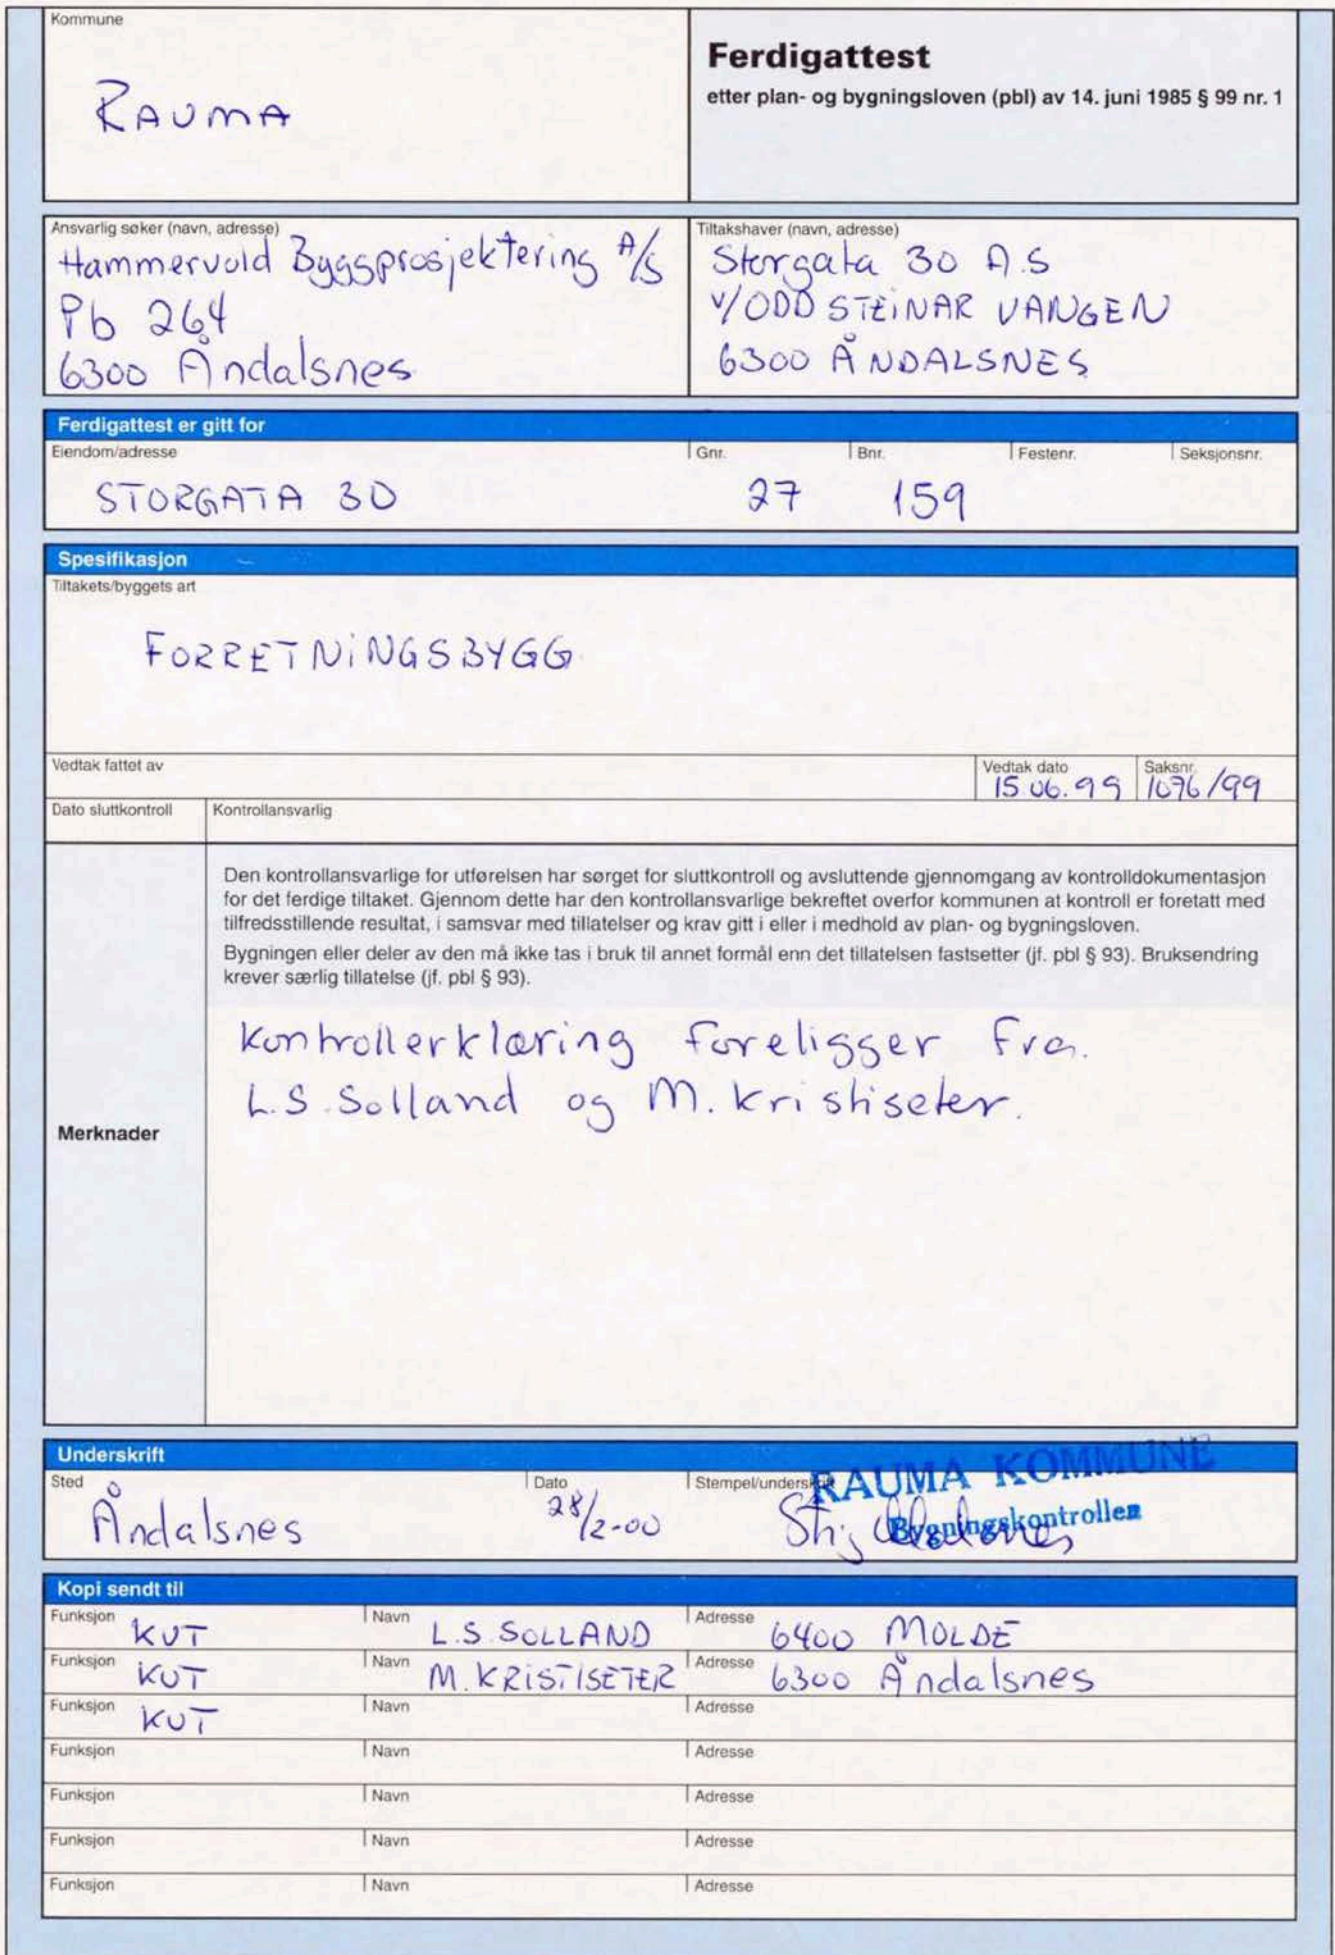 Kommune
RAUMA
Ferdigattest
etter plan- og bygningsloven (pbl) av 14. juni 1985 § 99 nr. 1
Ansvarlig søker (navn, adresse)
Hammervold Byggprosjektering A/S
Pb 264
6300 Åndalsnes
Tiltakshaver (navn, adresse)
Storgata 30 A.S
V/ODD STEINAR VANGEN
6300 ÅNDALSNES
Ferdigattest er gitt for
Eiendom/adresse Gnr. Bnr. Festenr. Seksjonsnr.
STORGATA 30 27 159
Spesifikasjon
Tiltakets/byggets art
FORRETNINGSBYGG
Vedtak fattet av Vedtak dato Saksnr.
15.06.99 1076/99
Dato sluttkontroll Kontrollansvarlig
Den kontrollansvarlige for utførelsen har sørget for sluttkontroll og avsluttende gjennomgang av kontrolldokumentasjon
for det ferdige tiltaket. Gjennom dette har den kontrollansvarlige bekreftet overfor kommunen at kontroll er foretatt med
tilfredsstillende resultat, i samsvar med tillatelser og krav gitt i eller i medhold av plan- og bygningsloven.
Bygningen eller deler av den må ikke tas i bruk til annet formål enn det tillatelsen fastsetter (jf. pbl § 93). Bruksendring
krever særlig tillatelse (jf. pbl § 93).
Kontrollerklæring foreligger fra
L.S. Solland og M. Kristiseter.
Merknader
Underskrift
Sted Dato Stempel/underskrift
RAUMA KOMMUNE
Bygningskontrollen
Åndalsnes 28/2-00 Stig
Kopi sendt til
Funksjon KUT Navn L.S. SOLLAND Adresse 6400 MOLDE
Funksjon KUT Navn M. KRISTISETER Adresse 6300 Åndalsnes
Funksjon KUT Navn Adresse
Funksjon Navn Adresse
Funksjon Navn Adresse
Funksjon Navn Adresse
Funksjon Navn Adresse